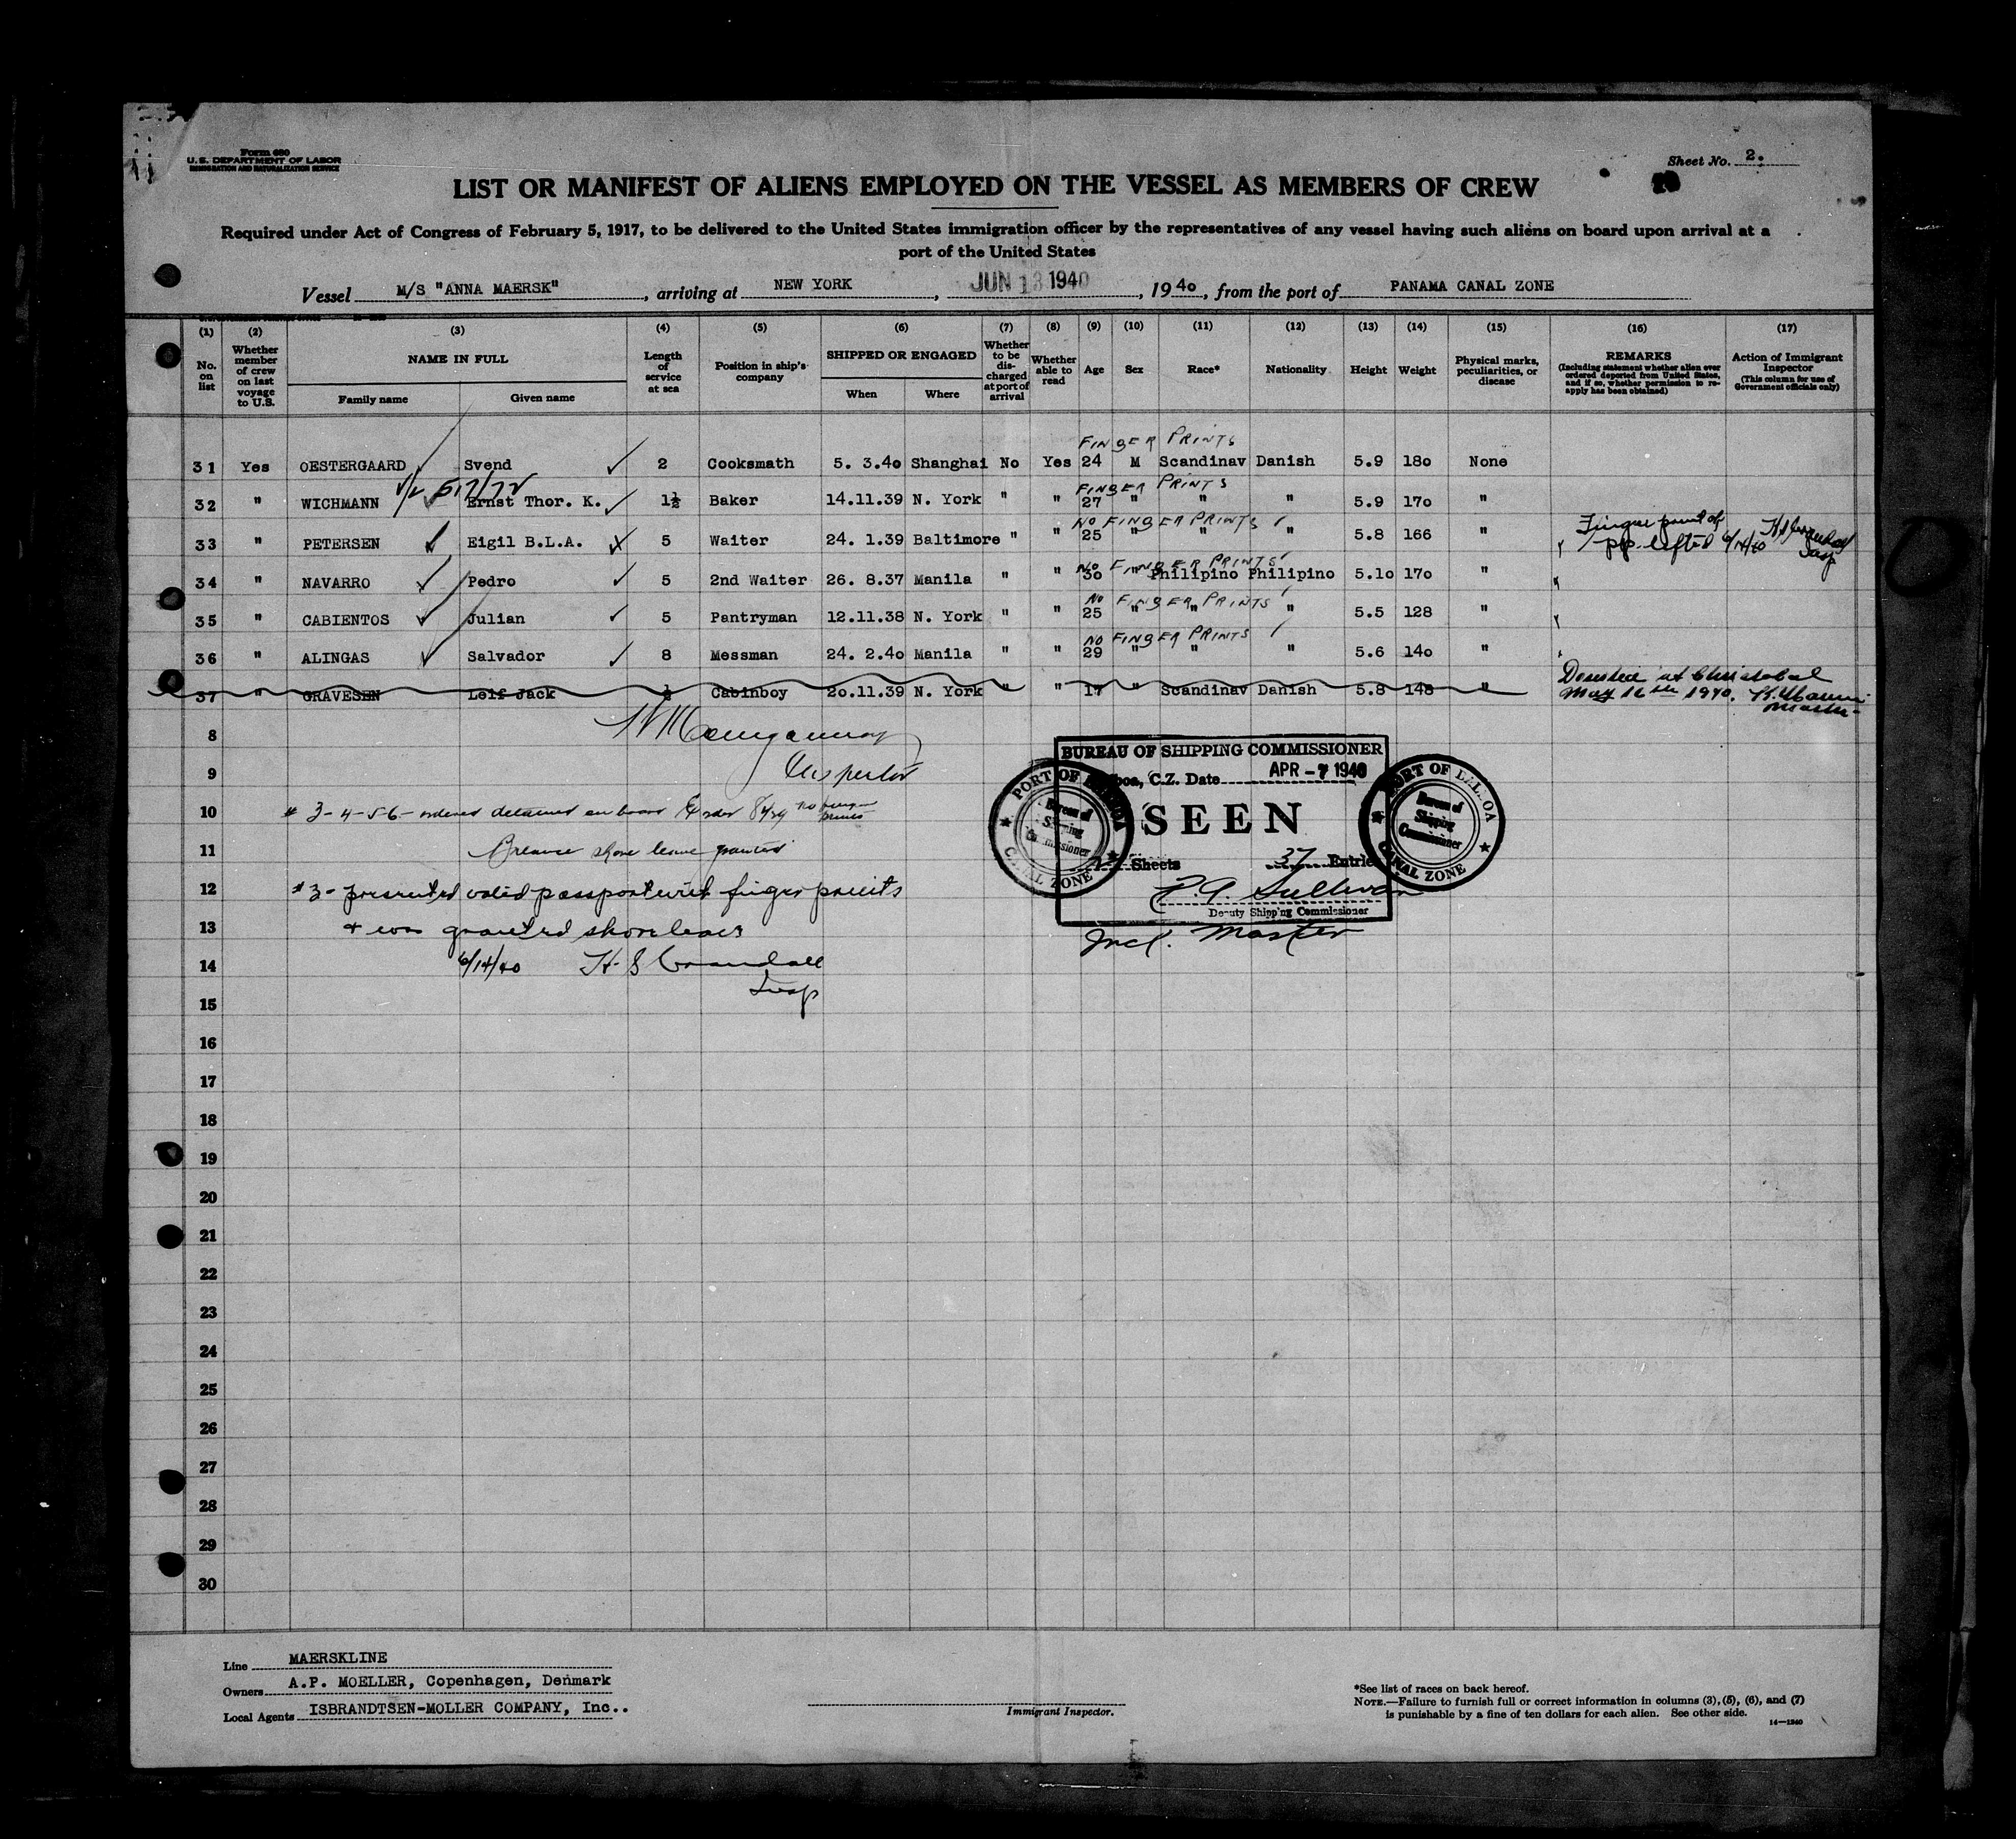 Form 680
U. S. DEPARTMENT OF LABOR
IMMIGRATION AND NATURALIZATION SERVICE
Sheet No. 2.
LIST OR MANIFEST OF ALIENS EMPLOYED ON THE VESSEL AS MEMBERS OF CREW
Required under Act of Congress of February 5, 1917, to be delivered to the United States immigration officer by the representatives of any vessel having such aliens on board upon arrival at a
port of the United States
Vessel M/S "ANNA MAERSK", arriving at NEW YORK, JUN 13 1940, 1940, from the port of PANAMA CANAL ZONE
(1) (2) (3) (4) (5) (6) (7) (8) (9) (10) (11) (12) (13) (14) (15) (16) (17)
No. on list
Whether member of crew on last voyage to U.S.
NAME IN FULL
Family name
Given name
Length of service at sea
Position in ship's company
SHIPPED OR ENGAGED
When
Where
Whether to be discharged at port of arrival
Whether able to read
Age
Sex
Race*
Nationality
Height
Weight
Physical marks, peculiarities, or disease
REMARKS
(Including statement whether alien ever ordered deported from United States, and if so, whether permission to reapply has been obtained)
Action of Immigrant Inspector
(This column for use of Government officials only)
FINGER PRINTS
31 Yes OESTERGAARD Svend 2 Cooksmath 5. 3.40 Shanghai No Yes 24 M Scandinav Danish 5.9 180 None
517/72
FINGER PRINTS
32 " WICHMANN Ernst Thor. K. 1½ Baker 14.11.39 N. York " " 27 " " " 5.9 170 "
NO FINGER PRINTS
33 " PETERSEN Eigil B.L.A. 5 Waiter 24. 1.39 Baltimore " " 25 " " " 5.8 166 " Finger print of pp. lifted 6/14/40 H S Crandall Insp
NO FINGER PRINTS
34 " NAVARRO Pedro 5 2nd Waiter 26. 8.37 Manila " " 30 " Philipino Philipino 5.10 170 "
NO FINGER PRINTS
35 " CABIENTOS Julian 5 Pantryman 12.11.38 N. York " " 25 " " " 5.5 128 "
NO FINGER PRINTS
36 " ALINGAS Salvador 8 Messman 24. 2.40 Manila " " 29 " " " 5.6 140 "
37 " GRAVESEN Leif Jack ½ Cabinboy 20.11.39 N. York " " 17 " Scandinav Danish 5.8 148 " Deserted at Christobal May 16th 1940. Master
8
Inspector
9
10 # 3-4-5-6- ordered detained on board Order 8429 no finger prints
11 Balance shore leave granted
12 #3- presented valid passport with finger prints
13 & was granted shore leave
14 6/14/40 H S Crandall
Insp
15
16
17
18
19
20
21
22
23
24
25
26
27
28
29
30
BUREAU OF SHIPPING COMMISSIONER
Balboa, C.Z. Date APR -7 1940
SEEN
2 Sheets 37 Entries
P.A. Sullivan
Deputy Shipping Commissioner
Incl. Master
PORT OF BALBOA
Bureau of
Shipping
Commissioner
CANAL ZONE
PORT OF BALBOA
Bureau of
Shipping
Commissioner
CANAL ZONE
Line MAERSKLINE
Owners A.P. MOELLER, Copenhagen, Denmark
Local Agents ISBRANDTSEN-MOLLER COMPANY, Inc..
Immigrant Inspector.
*See list of races on back hereof.
NOTE.—Failure to furnish full or correct information in columns (3), (5), (6), and (7)
is punishable by a fine of ten dollars for each alien. See other side.
14—1240